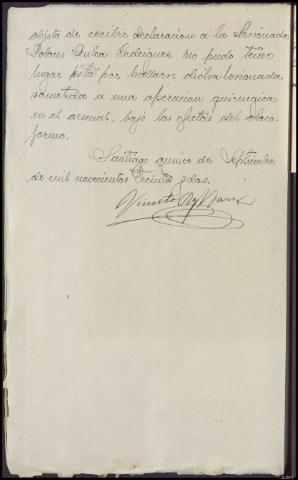 objeto de recibir declaracion a la lesionada
Dolores Dulca Rodriguez, no pudo tener
lugar ésta por hallarse dicha lesionada
sometida a una operación quirurgica
en el acto, bajo los efectos del cloro-
formo.
Santiago quince de Septiembre
de mil novecientos treinta y dos.
Vicente